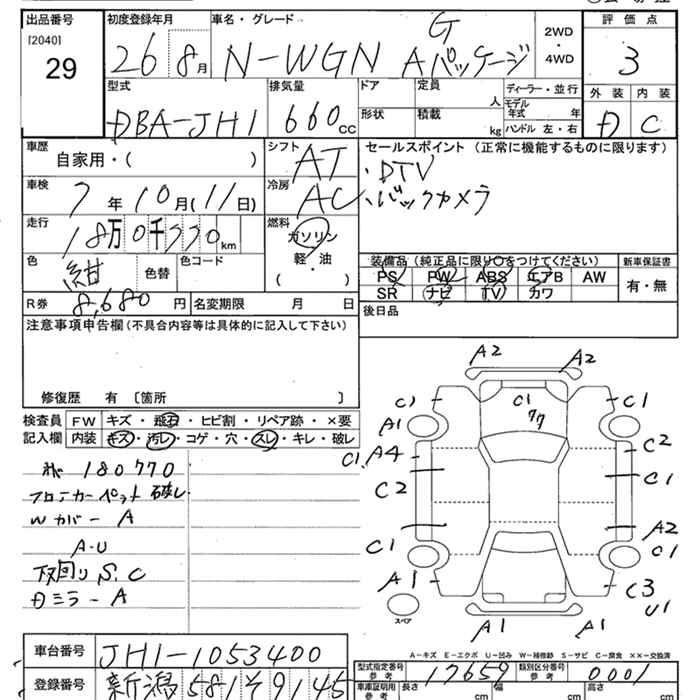 出品番号 初度登録年月 車名・グレード 評価点
[2040] 29 26 8月 N-WGN G Aパッケージ 2WD・4WD 3
型式 排気量 ドア 定員 人 ディーラー・並行 外装 内装
DBA-JH1 660cc 形状 積載 kg モデル年式 年 ハンドル 左・右 D C
車歴 自家用・( ) シフト AT セールスポイント (正常に機能するものに限ります)
・DTV
車検 7年10月(11日) 冷房 AC ・バックカメラ
走行 18万0千770km 燃料 ガソリン・軽・油 ( )
色 紺 色替 色コード
装備品 (純正品に限り○をつけてください) 新車保証書
PS PW ABS エアB AW 有・無
SR ナビ TV カワ
R券 8,680円 名変期限 月 日 後日品
注意事項申告欄 (不具合内容等は具体的に記入して下さい)
修復歴 有 〔箇所 〕
検査員 FW キズ・飛石・ヒビ割・リペア跡・×要
記入欄 内装 キズ・汚レ・コゲ・穴・スレ・キレ・破レ
180770
フロアカーペット 破レ
Wカバー A
A・U
下回り S.C
Dミラー A
A2 A2
C1 C1 77 C1
A1 C2
C1. A4 C1
C2 A2
C1 C1
A1 C3
U1
スペア
A1 A1
A-キズ E-エクボ U-凹み W-補修跡 S-サビ C-腐食 ××-交換済
車台番号 JH1-1053400
型式指定番号 参考 17659 類別区分番号 参考 0001
登録番号 新潟581そ9145
車庫証明用 参考 長さ cm 幅 cm 高さ cm